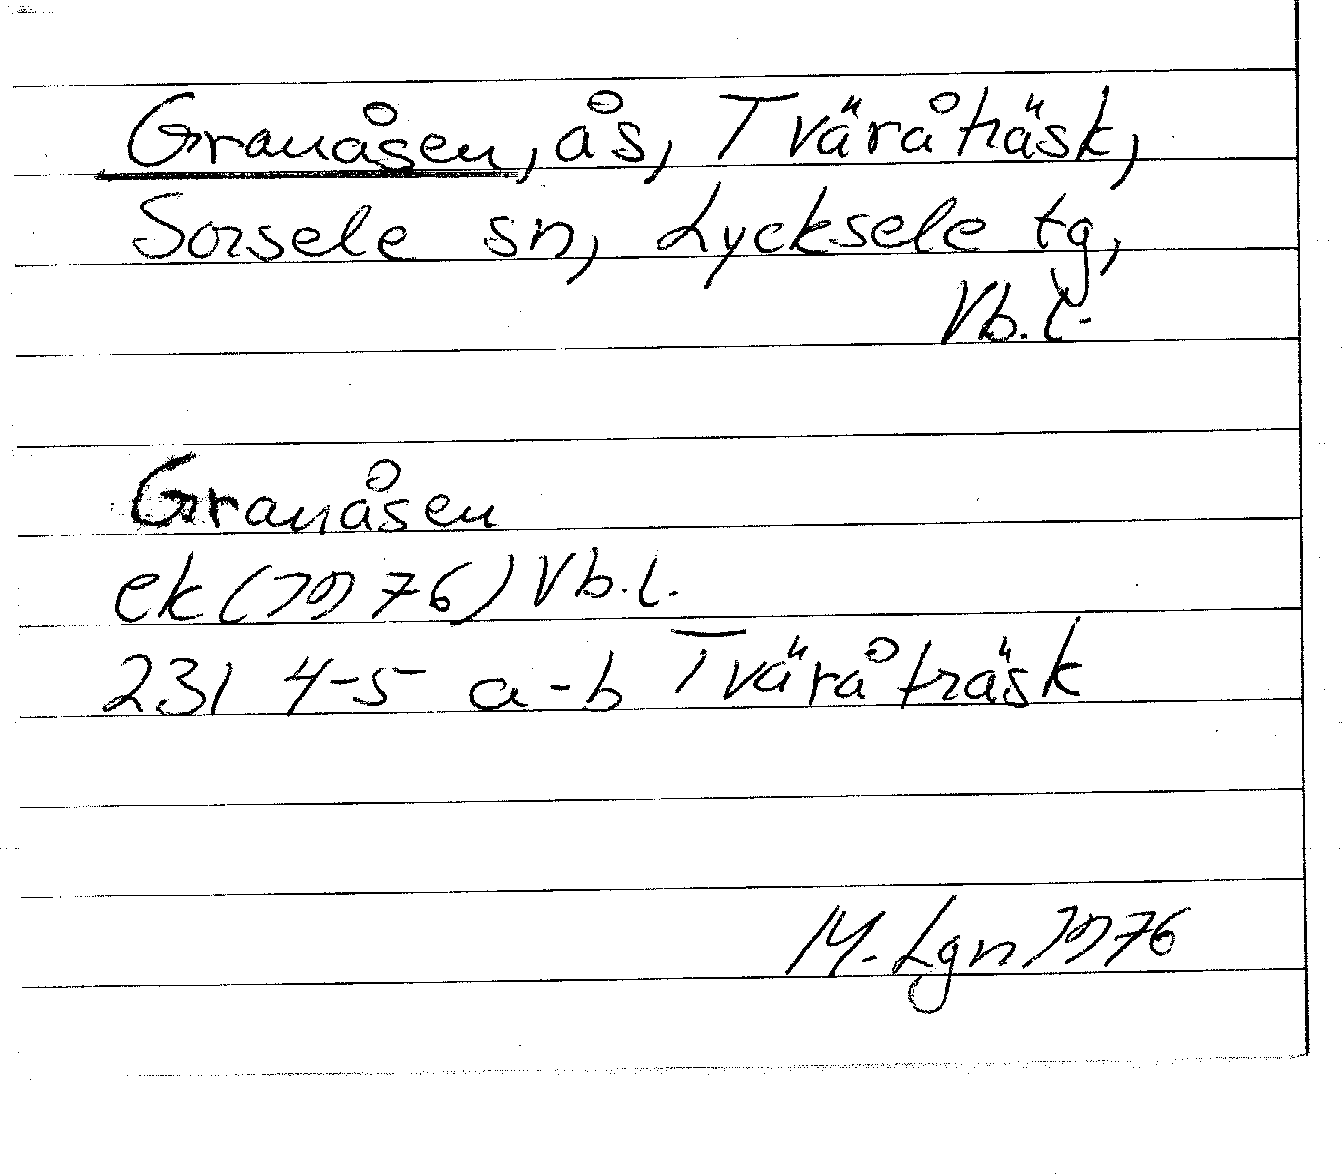 Granåsen, ås, Tväråträsk,
Sorsele sn, Lycksele tg,
Vb.l.
Granåsen
ek (1976) Vb.l.
231 4-5 a-b Tväråträsk
M. Lgn 1976